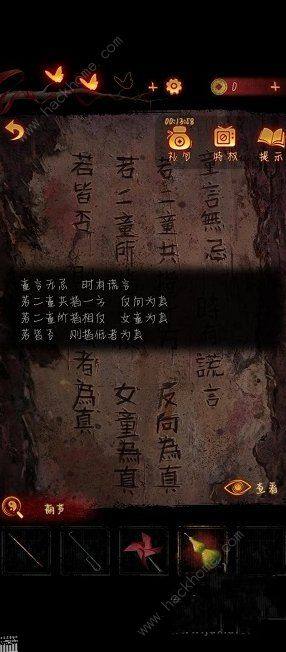 + 0 +
00:13:58
礼包 特权 提示
童言無忌 謊言
若二童共指 反向為真
若二童所 女童為真
若皆否 者為真
童言无忌 时有谎言
若二童共指一方 反向为真
若二童所指相反 女童为真
若皆否 则指低者为真
查看
葫芦
www.hackhome.com